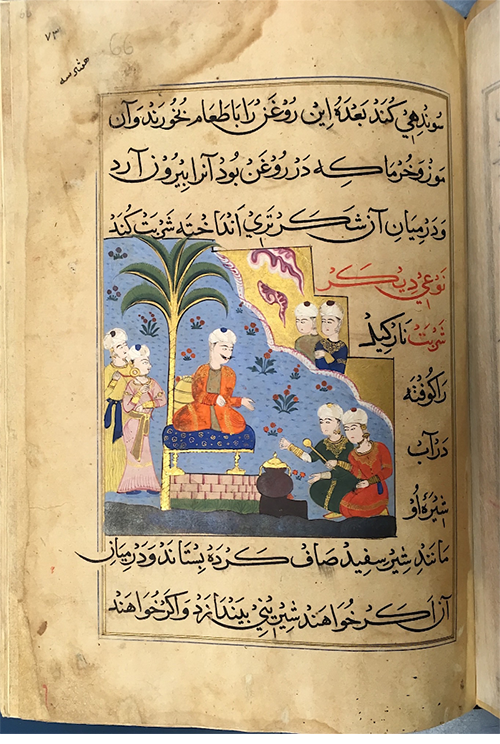 ۷۳
66
هفتاد سه
سوندهی کند بعده این روغن را با طعام بخورند و آن
موز و خرما که در روغن بود آنرا بیرون آرد
و در میان آن شکر تری انداخته شربت کند
نوعی دیکر
شربت نارکیل
را کوفته
در آب
شیرهٔ او
مانند شیر سفید صاف کرده بستاند و در میان
آن اکر خواهند شیرینی بیندازد و اکر خواهند